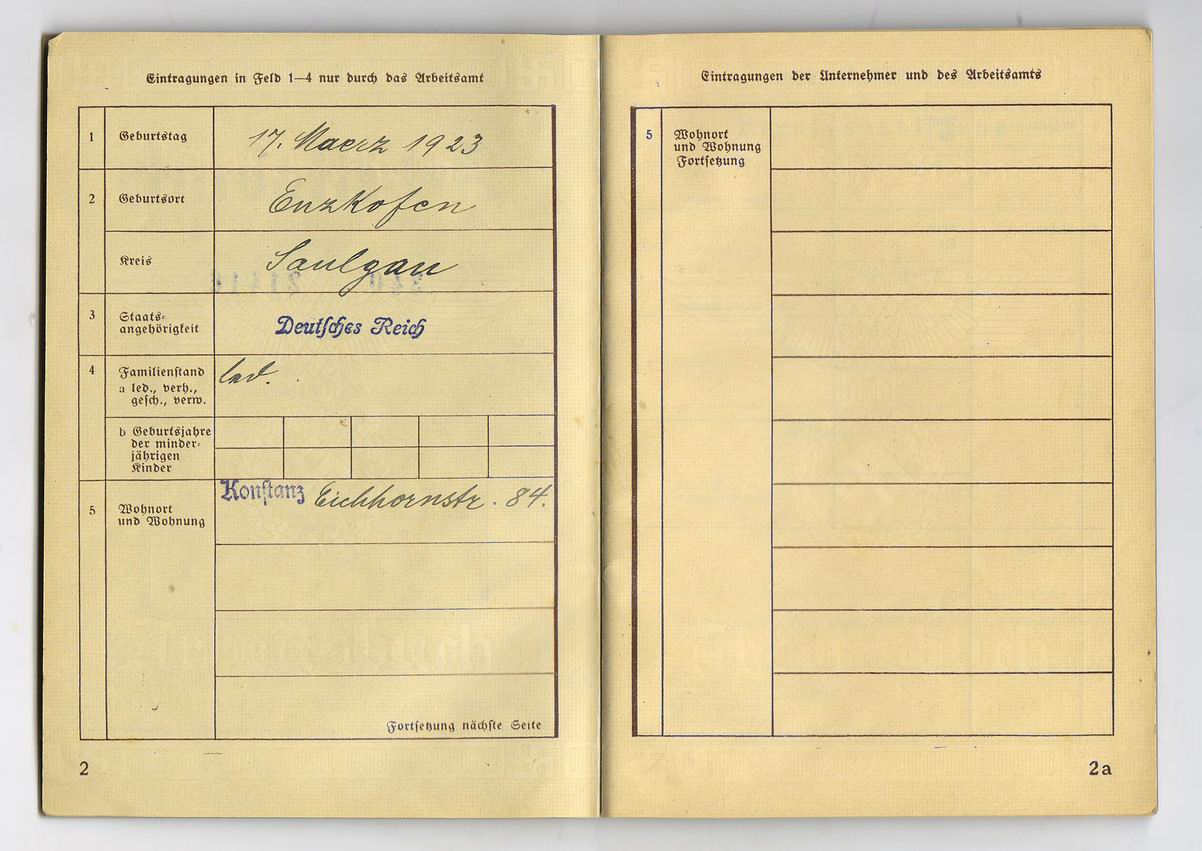 Eintragungen in Feld 1—4 nur durch das Arbeitsamt
1 Geburtstag 17. Maerz 1923
2 Geburtsort Enzkofen
Kreis Saulgau
3 Staats-
angehörigkeit Deutsches Reich
4 Familienstand led.
a led., verh.,
gesch., verw.
b Geburtsjahre
der minder-
jährigen
Kinder
Konstanz Eichhornstr. 84.
5 Wohnort
und Wohnung
Fortsetzung nächste Seite
2
Eintragungen der Unternehmer und des Arbeitsamts
5 Wohnort
und Wohnung
Fortsetzung
2a